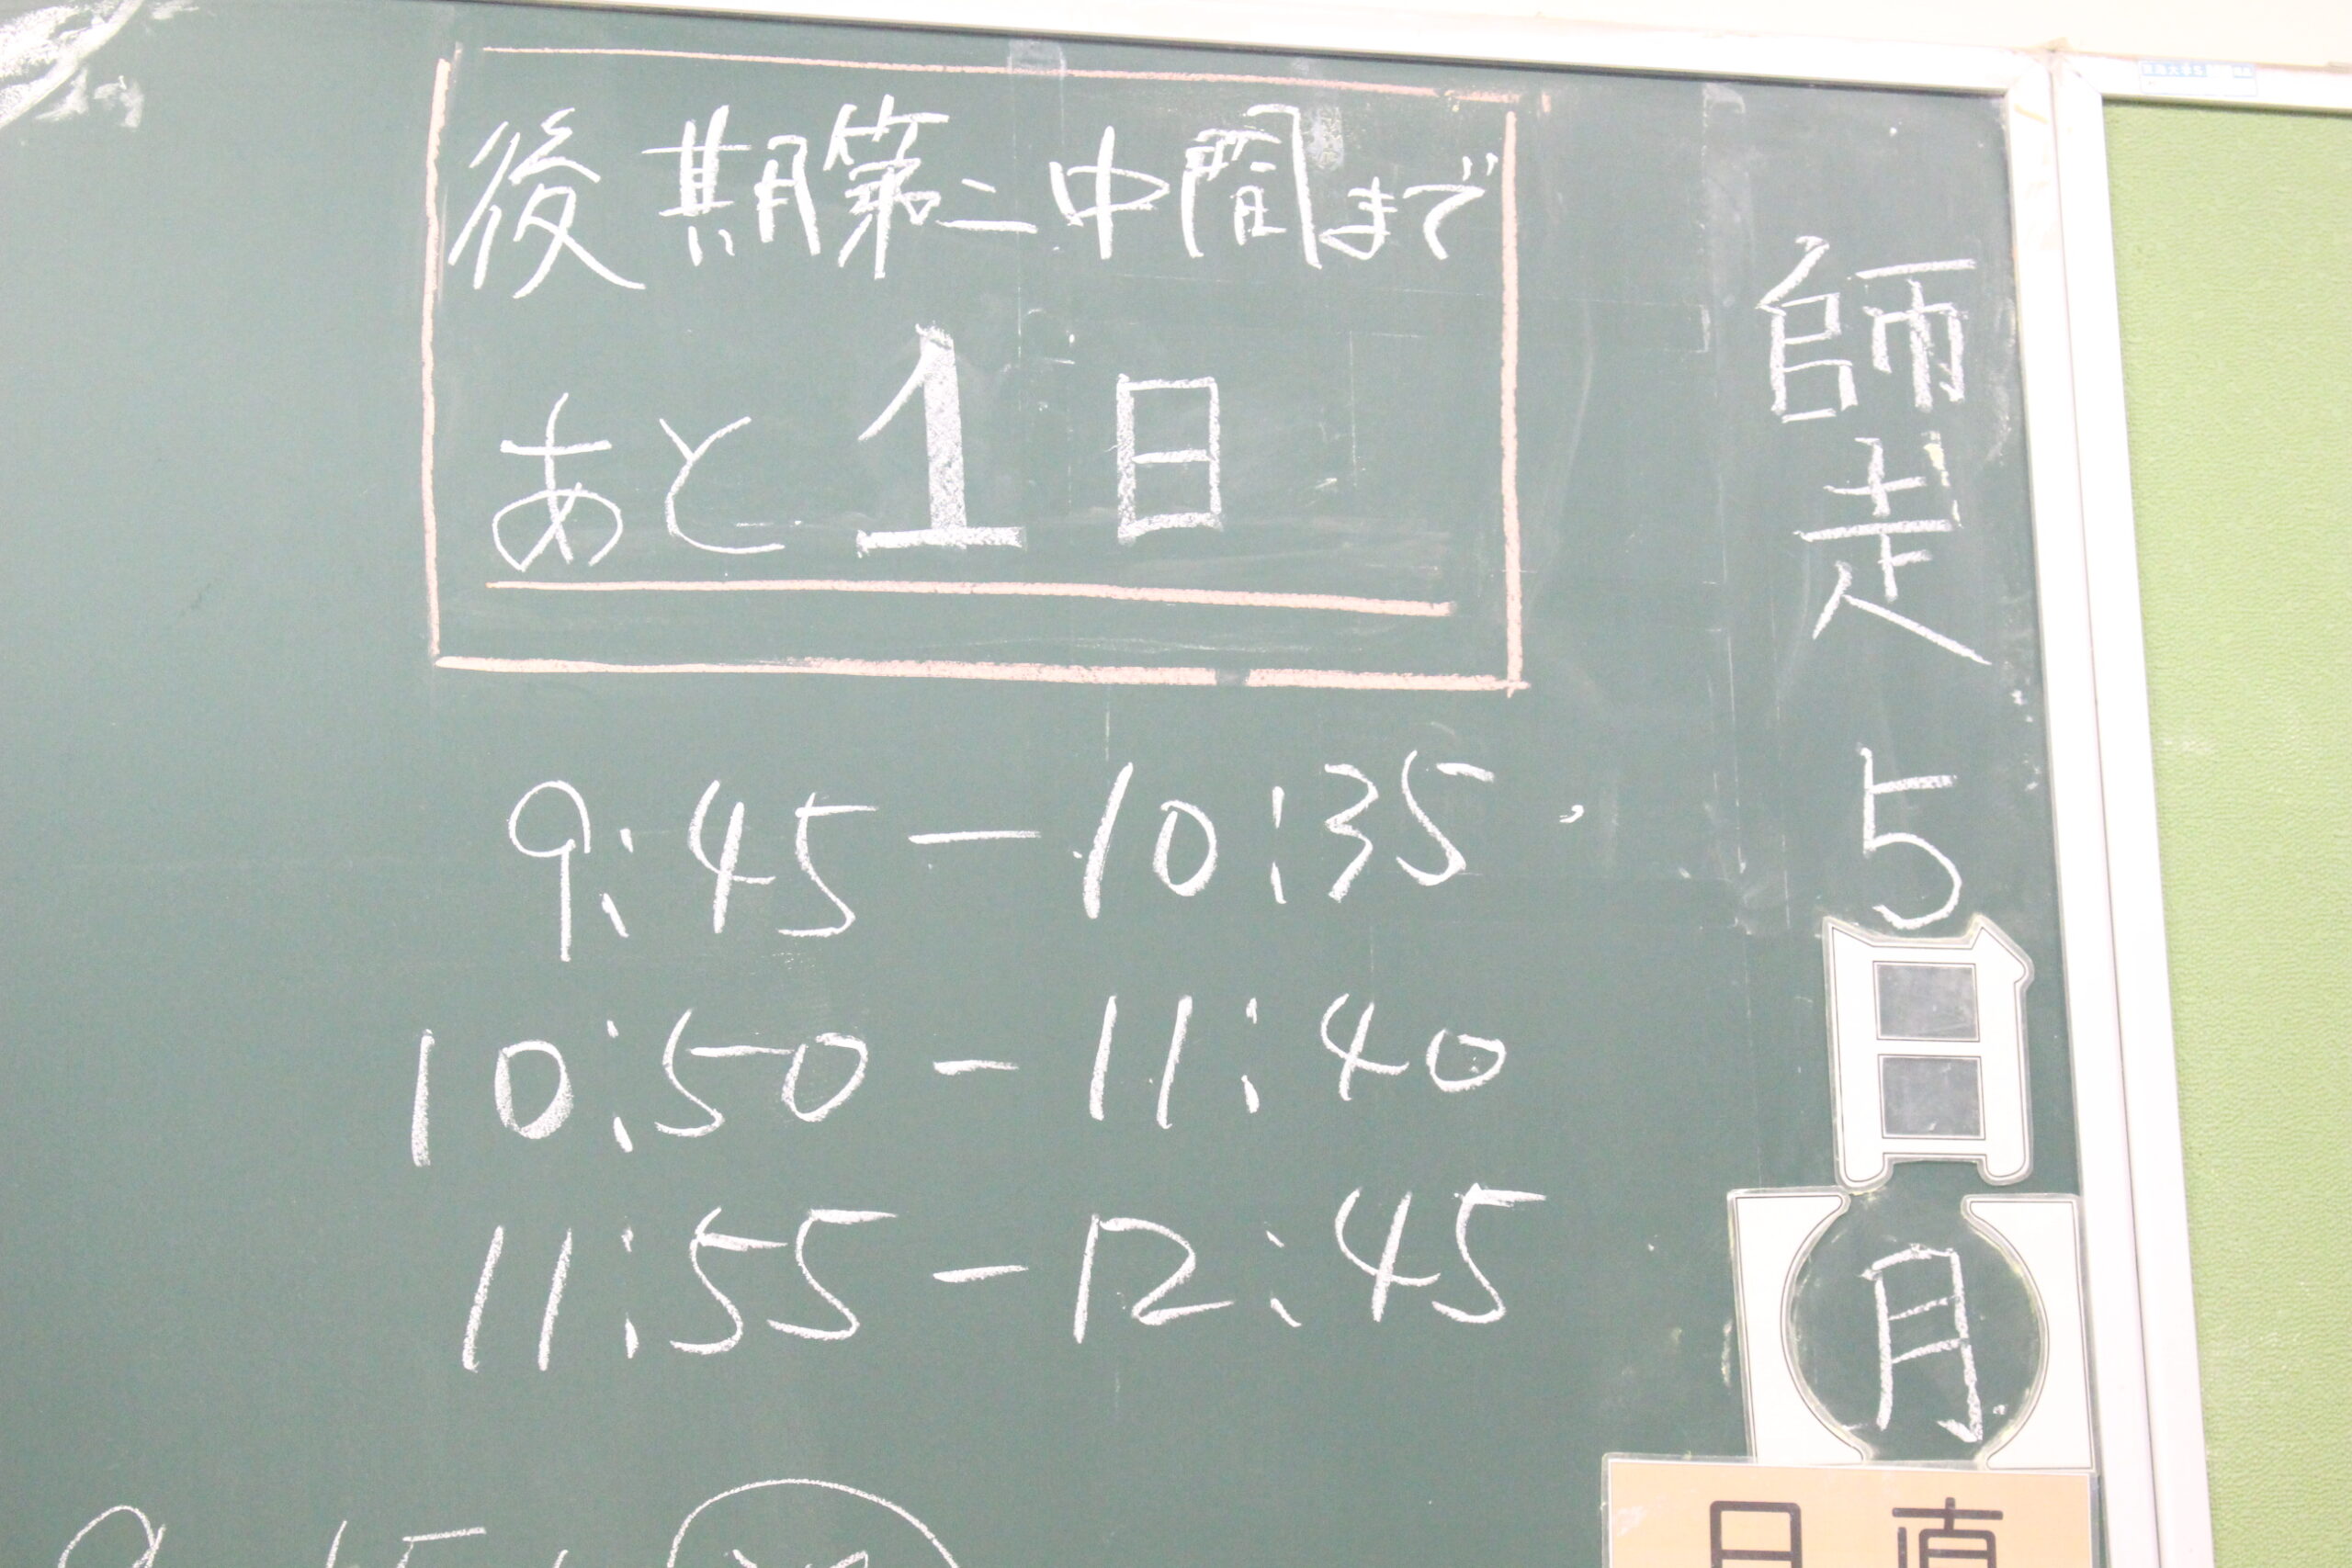 後期第二中間まで
あと1日
9:45 — 10:35
10:50 — 11:40
11:55 — 12:45
師走5日(月)
日直